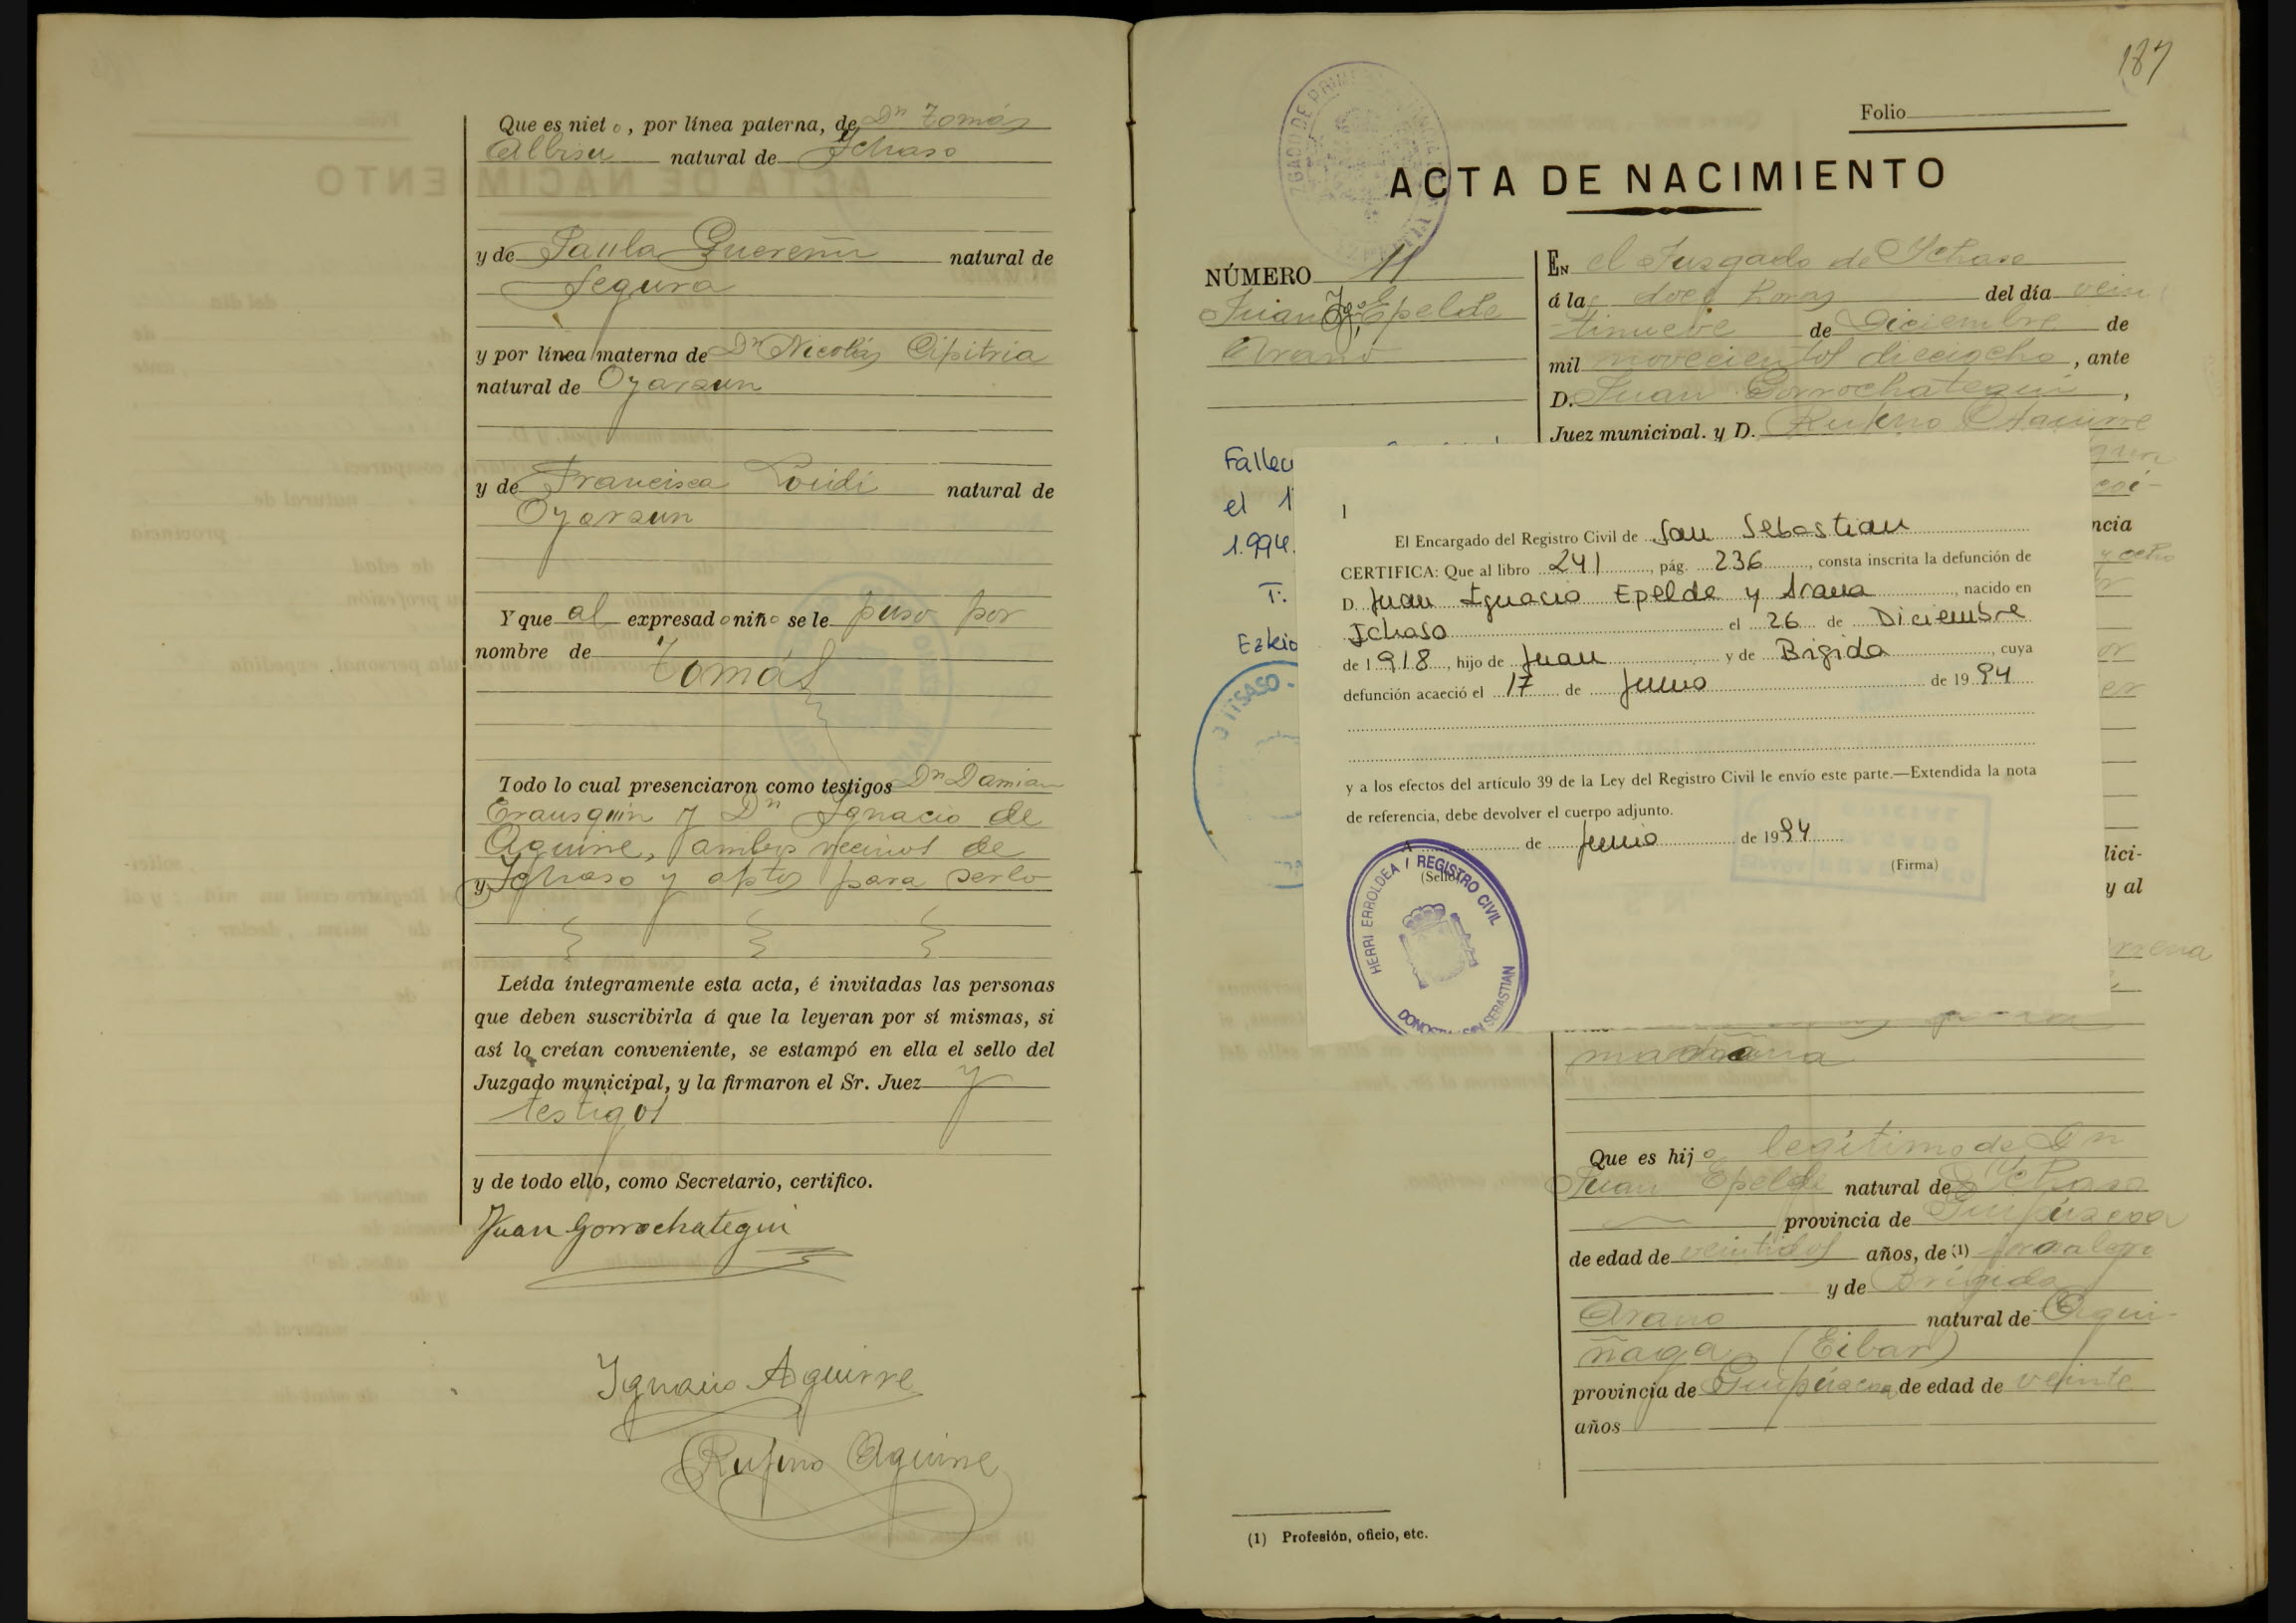 Que es nieto, por línea paterna, de Dn Tomás
Albisu natural de Ychaso
y de Paula Querenu natural de
Segura
y por línea materna de Dn Nicolás Cipitria
natural de Oyarzun
y de Francisca Loidi natural de
Oyarzun
Y que al expresado niño se le puso por
nombre de
Tomás
Todo lo cual presenciaron como testigos Dn Damian
Erausquin y Dn Ignacio de
Aguirre, ambos vecinos de
Ychaso y aptos para serlo
y
Leída íntegramente esta acta, é invitadas las personas
que deben suscribirla á que la leyeran por sí mismas, si
así lo creían conveniente, se estampó en ella el sello del
Juzgado municipal, y la firmaron el Sr. Juez y
testigos
y de todo ello, como Secretario, certifico.
Juan Gorrochategui
Ygnacio Aguirre
Rufino Aguirre
187
Folio
ACTA DE NACIMIENTO
NÚMERO 11
Juan Ygo Epelde
Arano
En el Juzgado de Ychaso
á las doce horas del día vein
tinueve de Diciembre de
mil novecientos dieciocho, ante
D. Juan Gorrochategui,
Juez municipal. y D. Rufino Aguirre
Fallec
el 1
1.994.
T:
Ezkio
O ITSASO -
ncia
lici-
y al
I
El Encargado del Registro Civil de San Sebastian
CERTIFICA: Que al libro 241, pág. 236, consta inscrita la defunción de
D. Juan Ignacio Epelde y Arana, nacido en
Ichaso el 26 de Diciembre
de 1918, hijo de Juan y de Brigida, cuya
defunción acaeció el 17 de Junio de 1994
y a los efectos del artículo 39 de la Ley del Registro Civil le envío este parte.—Extendida la nota
de referencia, debe devolver el cuerpo adjunto.
A de Junio de 1994
(Sello)
(Firma)
HERRI ERROLDEA / REGISTRO CIVIL
DONOSTIA - SAN SEBASTIAN
mañana
Que es hijo legítimo de Dn
Juan Epelde natural de Ychaso
provincia de Guipúzcoa
de edad de veintidos años, de (1)
y de Brígida
Arano natural de Agui-
ñaga (Eibar)
provincia de Guipúzcoa de edad de veinte
años
(1) Profesión, oficio, etc.